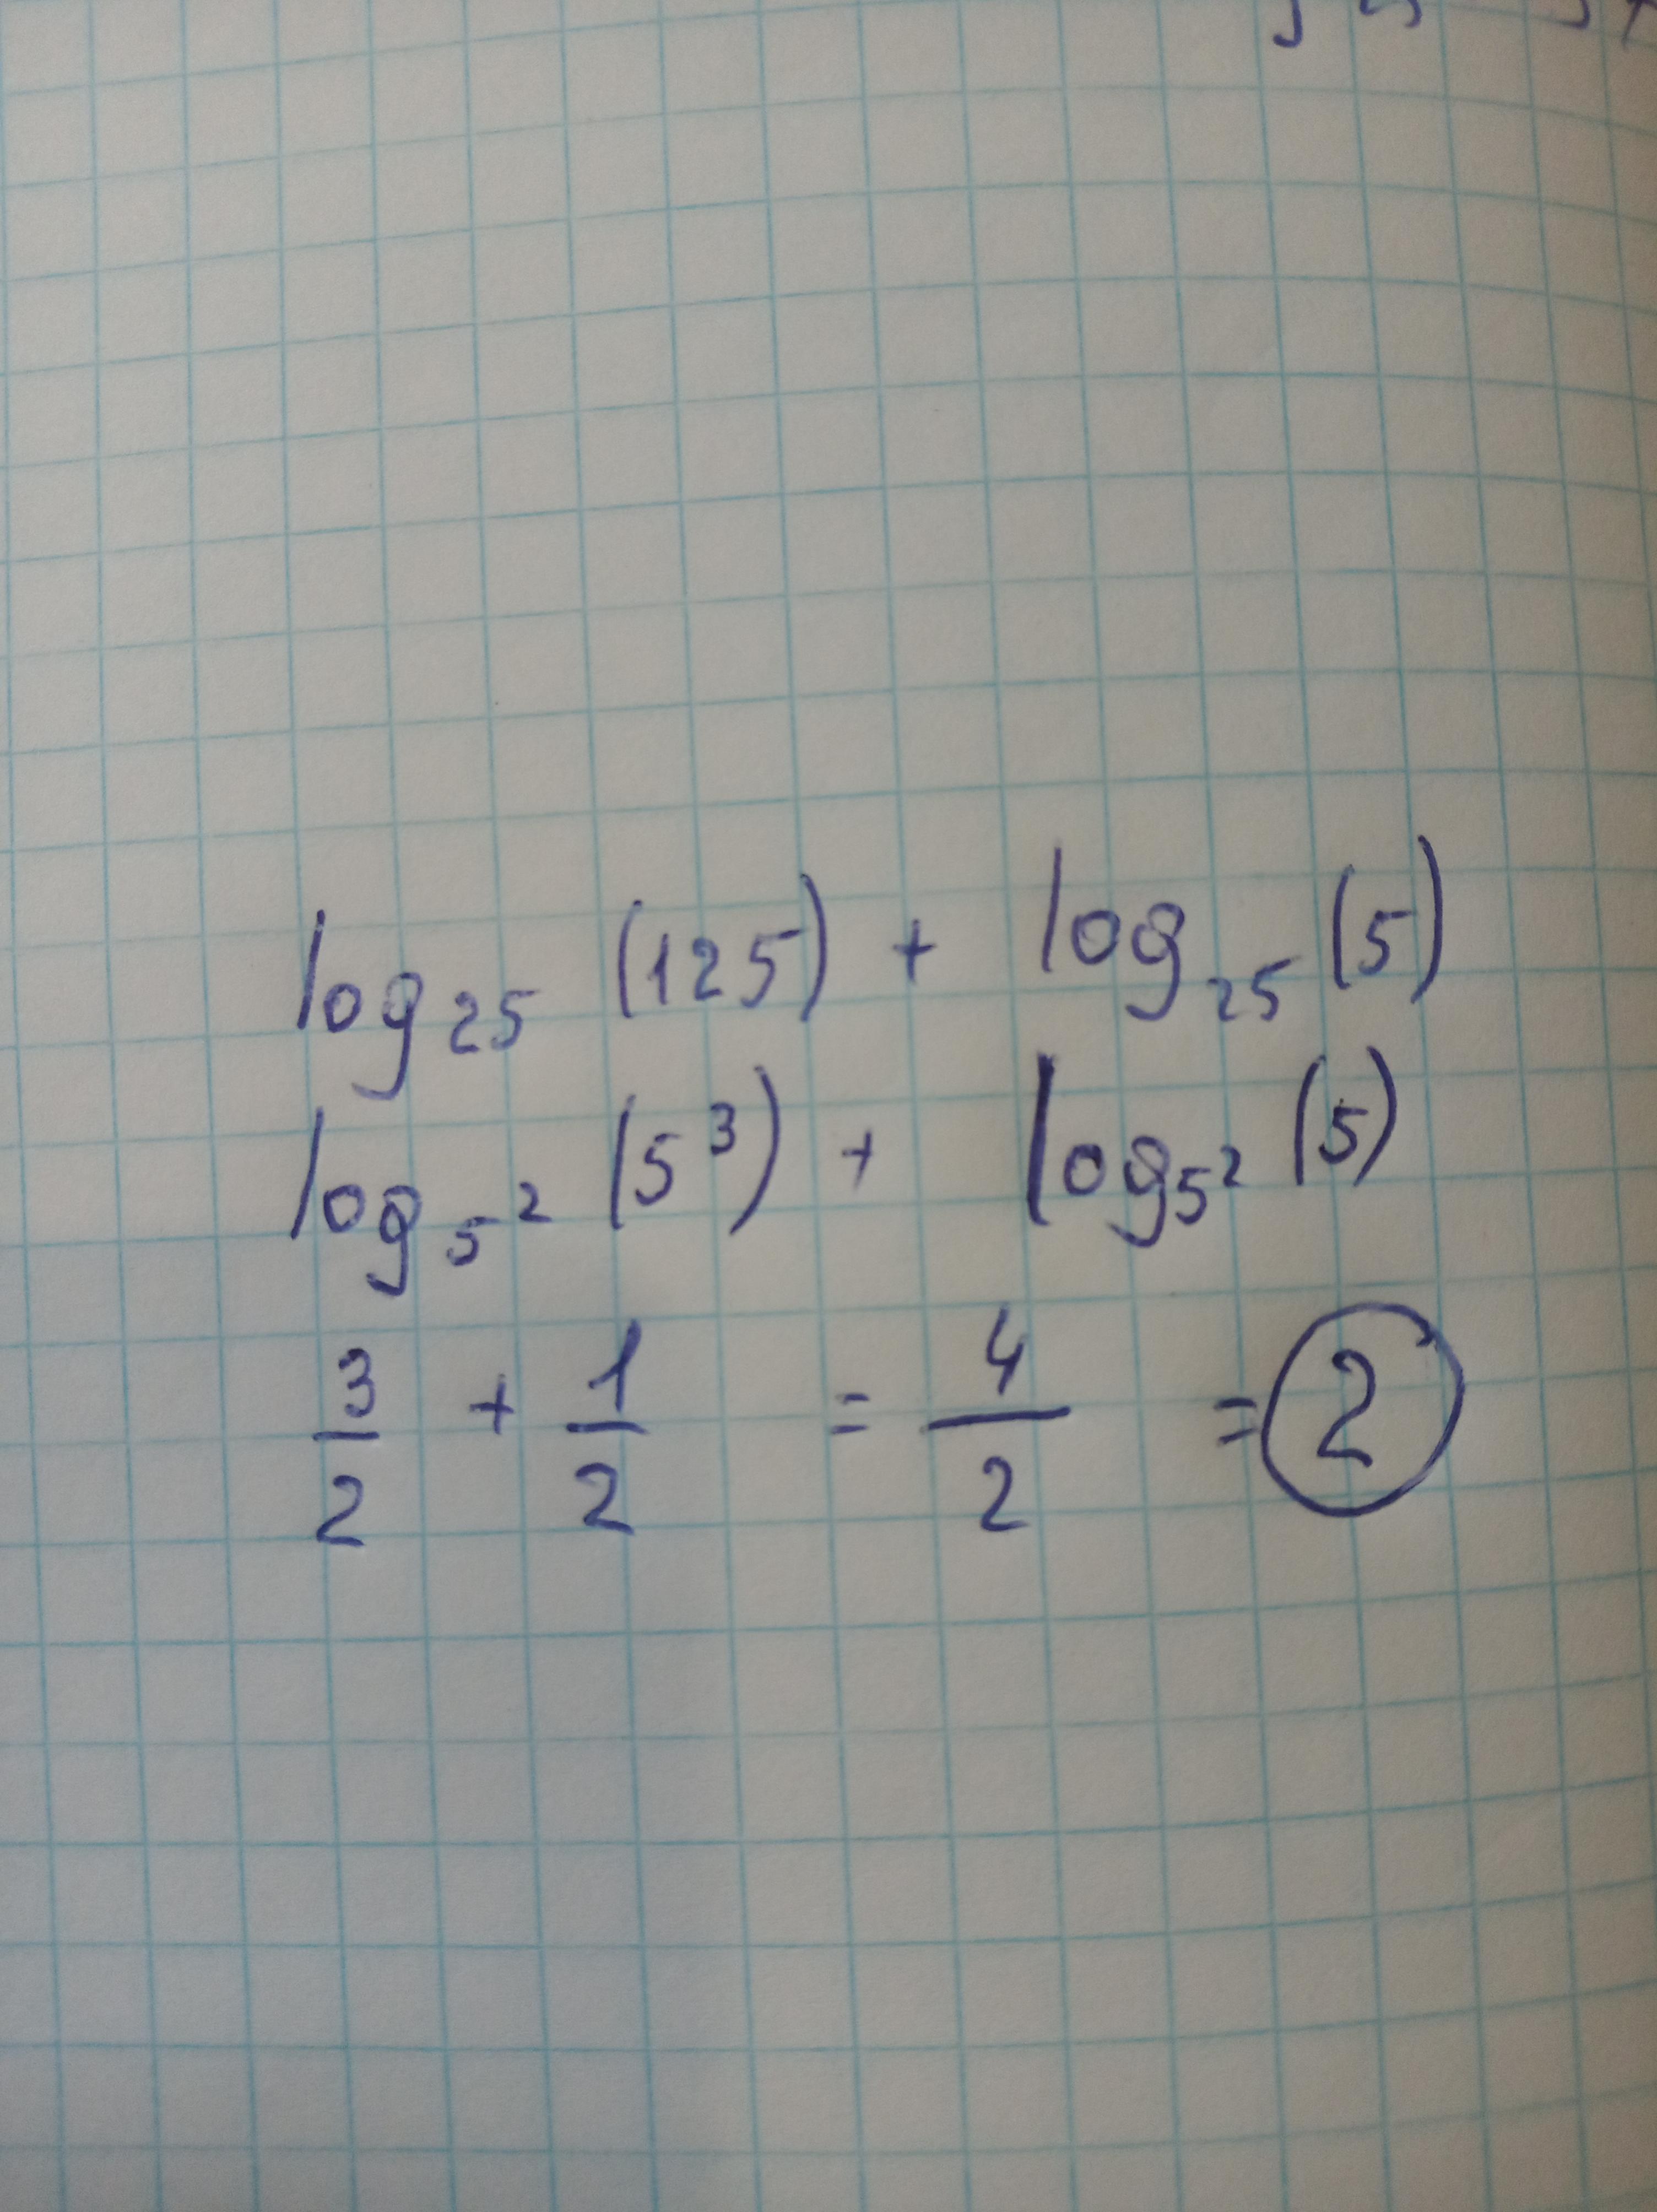 log₂₅ (125) + log₂₅ (5)
log₅² (5³) + log₅² (5)
3/2 + 1/2 = 4/2 = 2